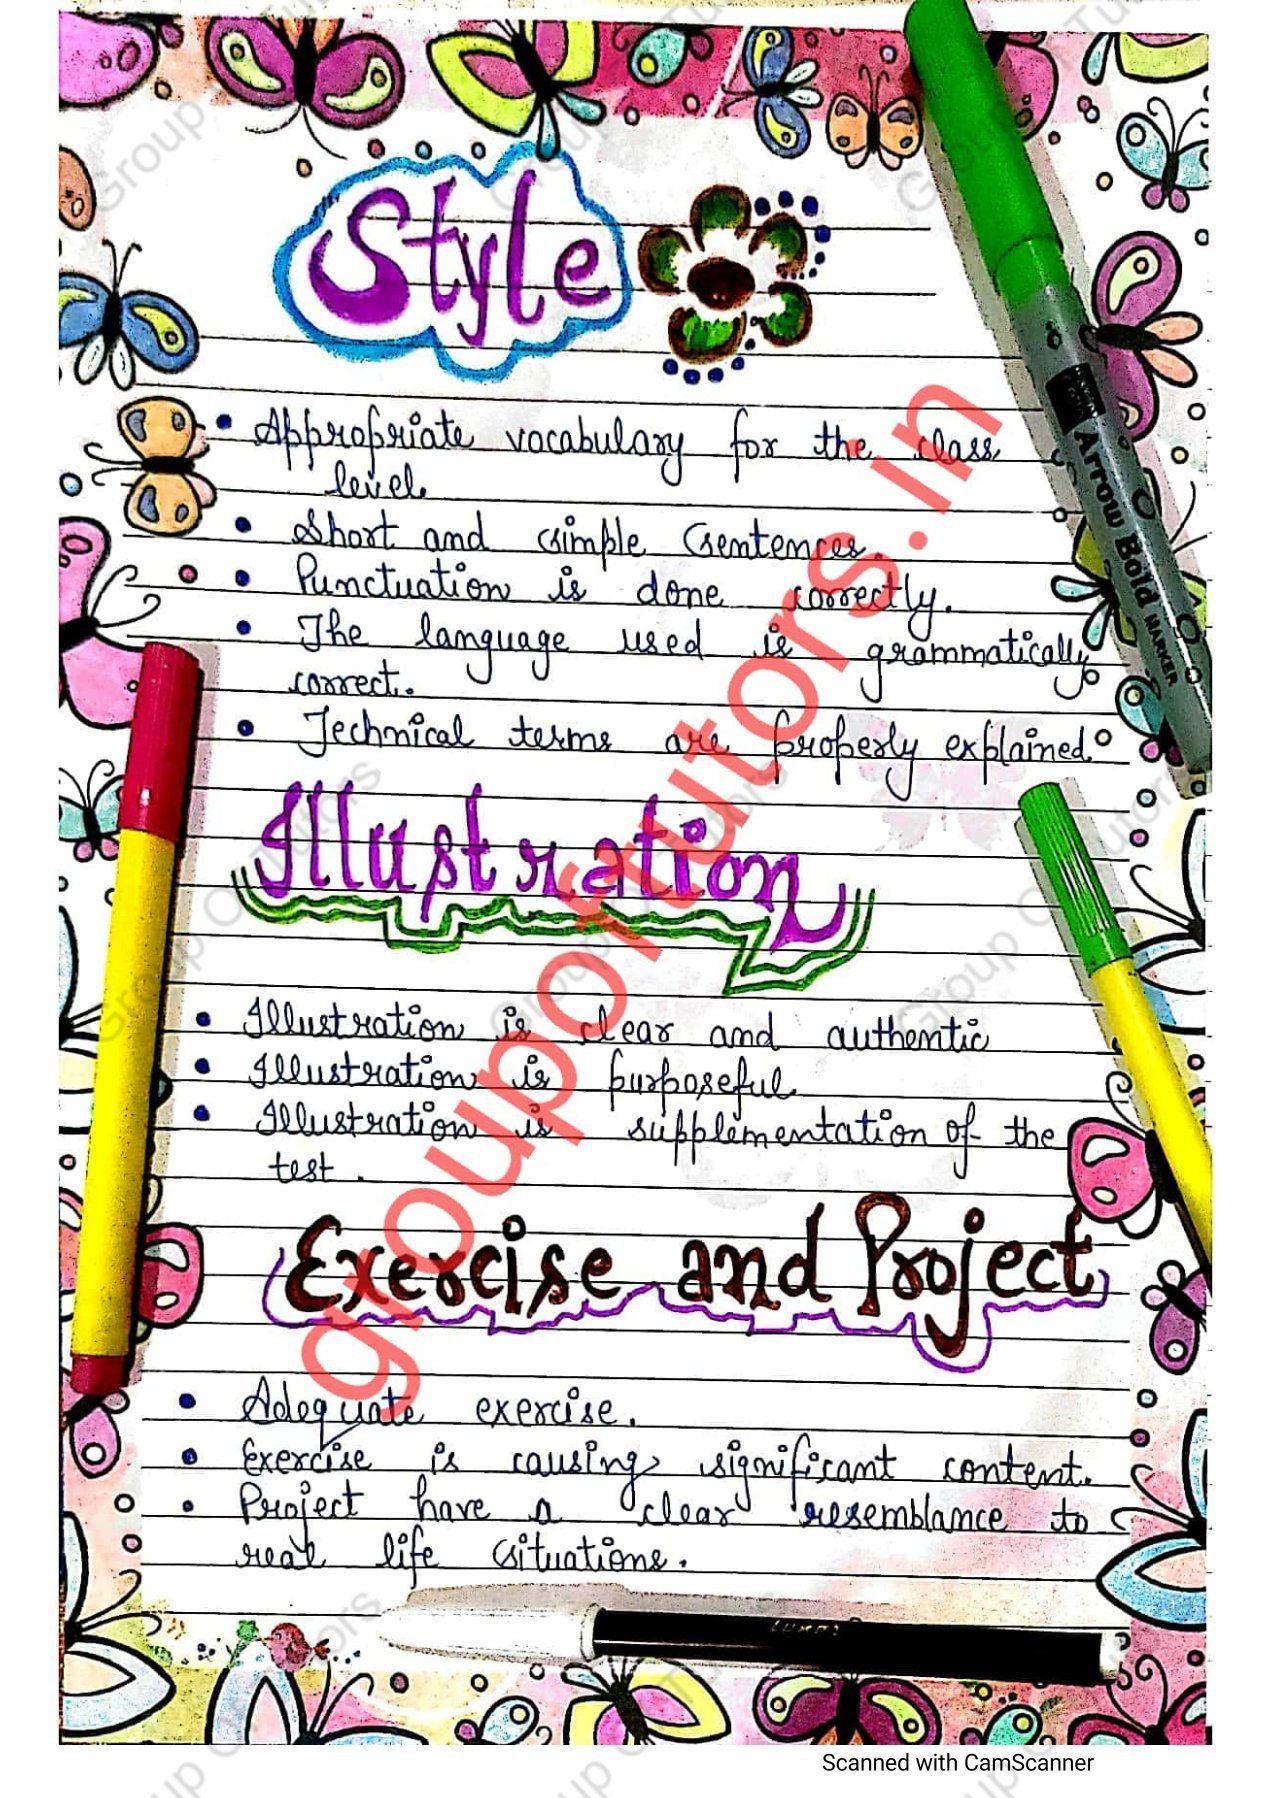 Style
• Appropriate vocabulary for the class
level.
• Short and simple sentences.
• Punctuation is done correctly.
• The language used is grammatically
correct.
• Technical terms are properly explained.
Illustration
• Illustration is clear and authentic
• Illustration is purposeful
• Illustration is supplementation of the
test.
Exercise and Project
• Adequate exercise.
• Exercise is causing significant content.
• Project have a clear resemblance to
real life situations.
Arrow Bold MARKER
groupoftutors.in
Group Of Tutors
Scanned with CamScanner